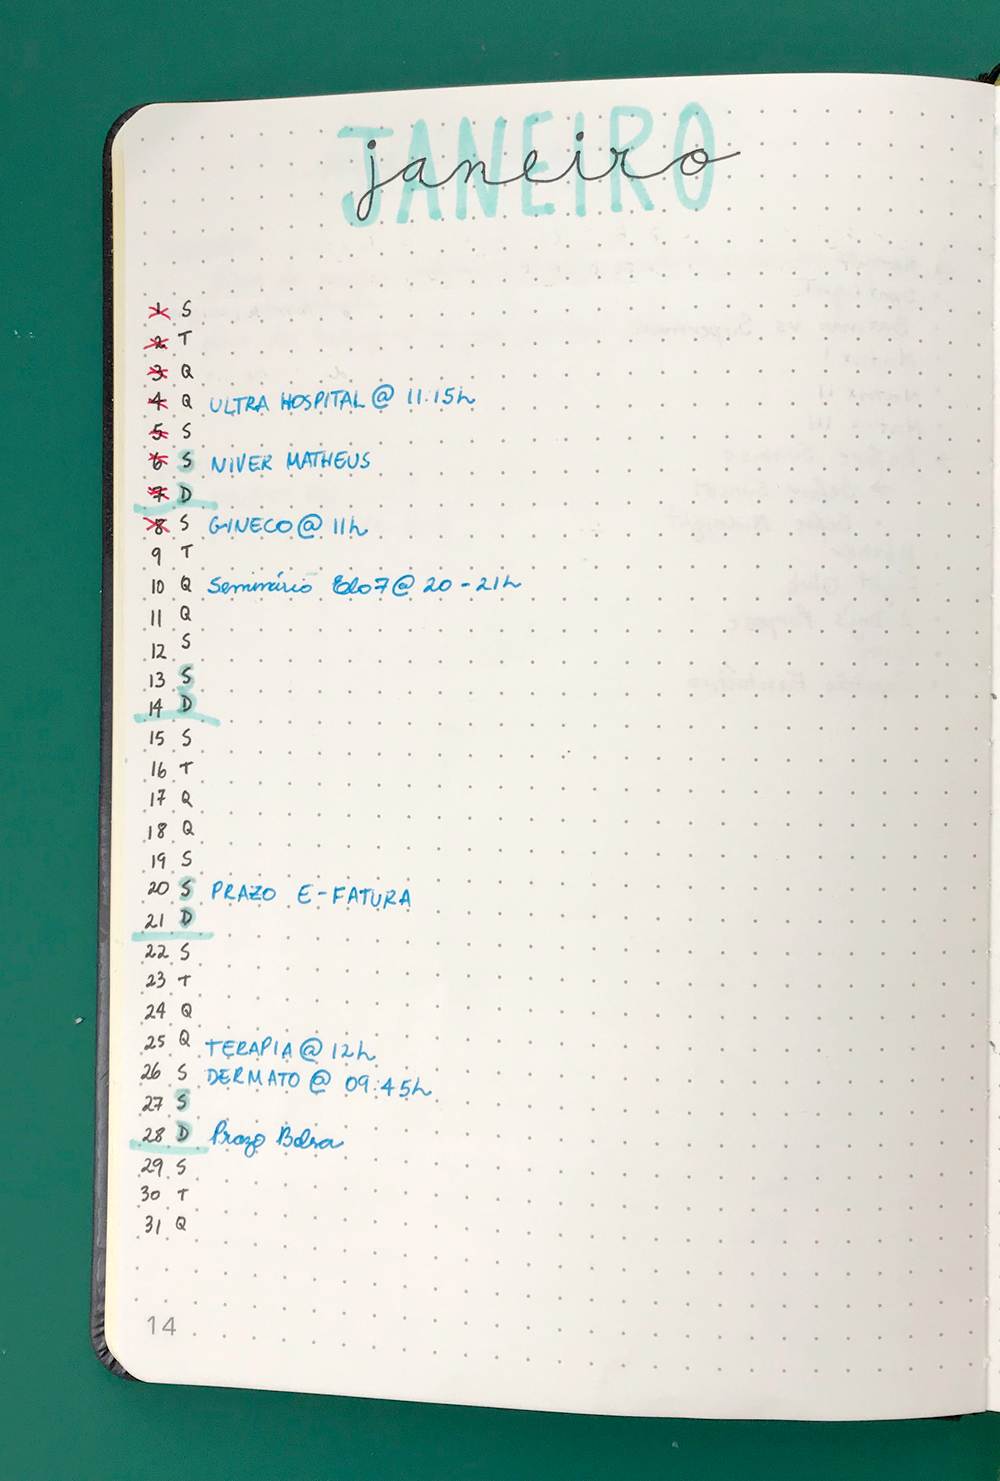 JANEIRO
janeiro
1 S
2 T
3 Q
4 Q ULTRA HOSPITAL @ 11:15h
5 S
6 S NIVER MATHEUS
7 D
8 S GINECO @ 11h
9 T
10 Q Seminário Elo7 @ 20-21h
11 Q
12 S
13 S
14 D
15 S
16 T
17 Q
18 Q
19 S
20 S PRAZO E-FATURA
21 D
22 S
23 T
24 Q
25 Q TERAPIA @ 12h
26 S DERMATO @ 09:45h
27 S
28 D Prazo Bolsa
29 S
30 T
31 Q
14